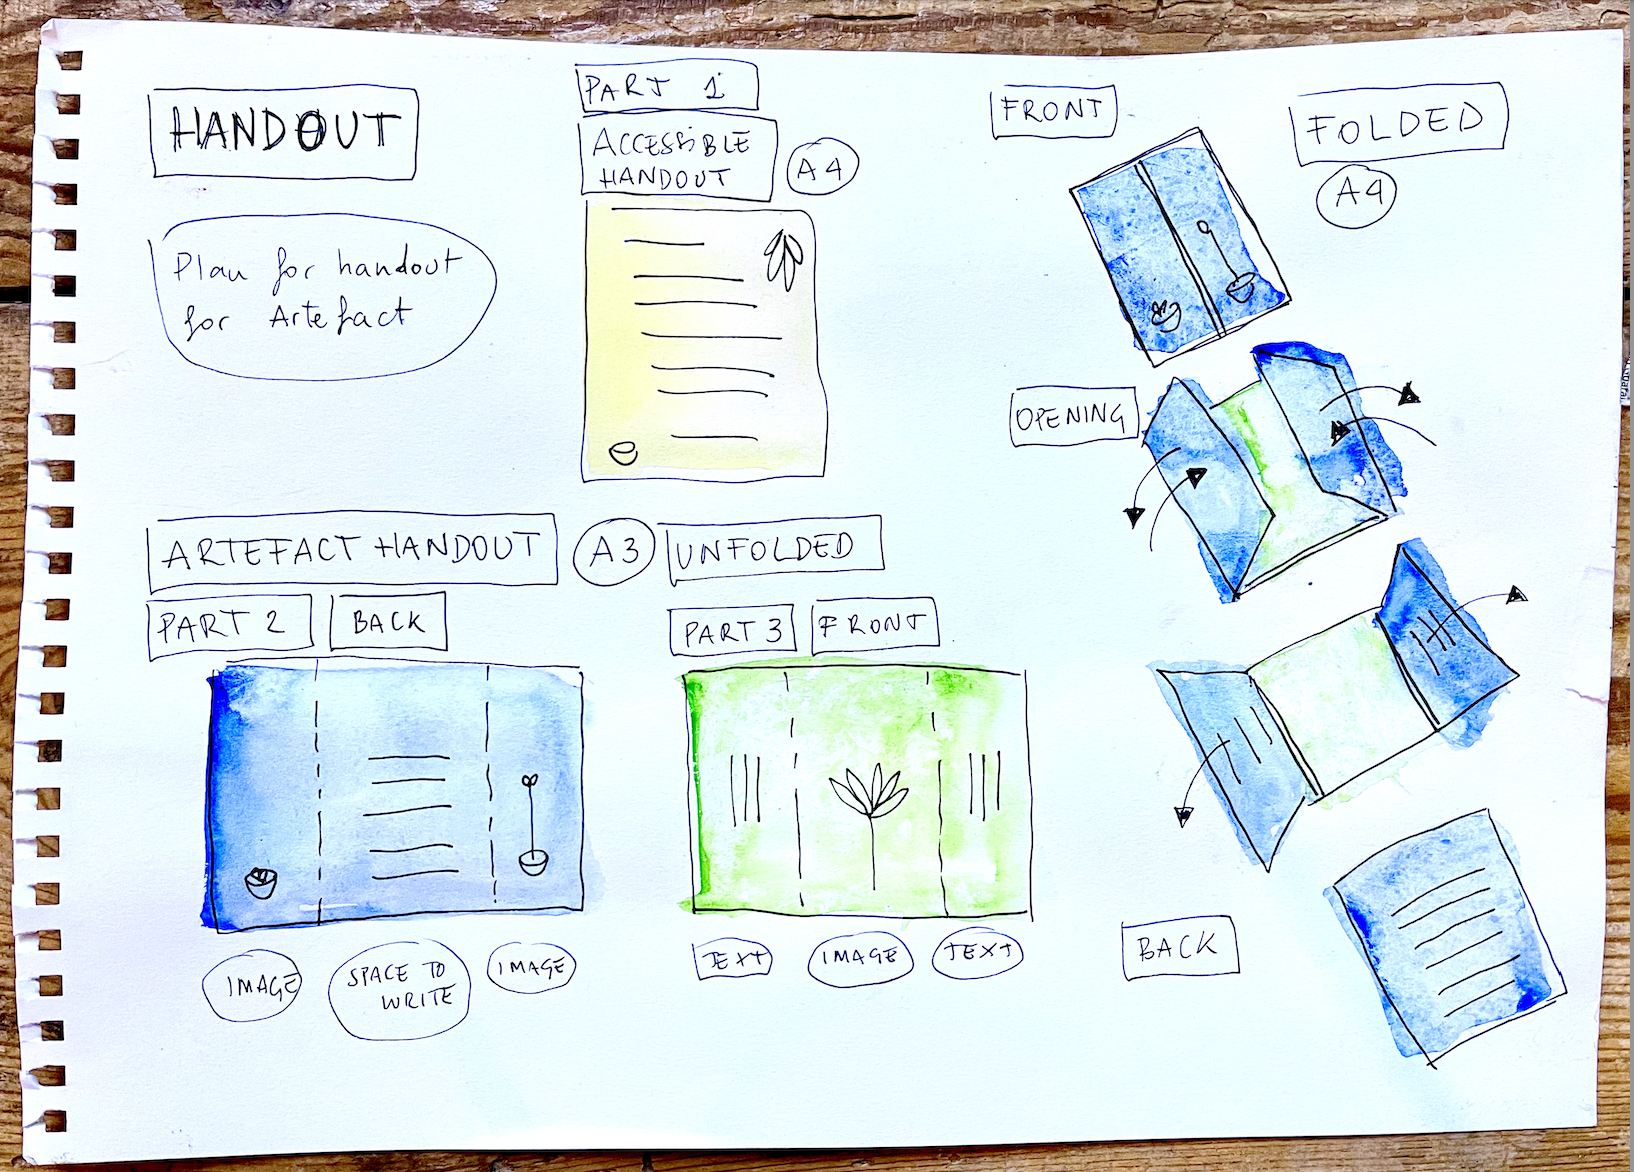 HANDOUT
Plan for handout
for Artefact
PART 1
ACCESSIBLE
HANDOUT
A4
FRONT
FOLDED
A4
OPENING
ARTEFACT HANDOUT
A3
UNFOLDED
PART 2
BACK
PART 3
FRONT
IMAGE
SPACE TO
WRITE
IMAGE
TEXT
IMAGE
TEXT
BACK